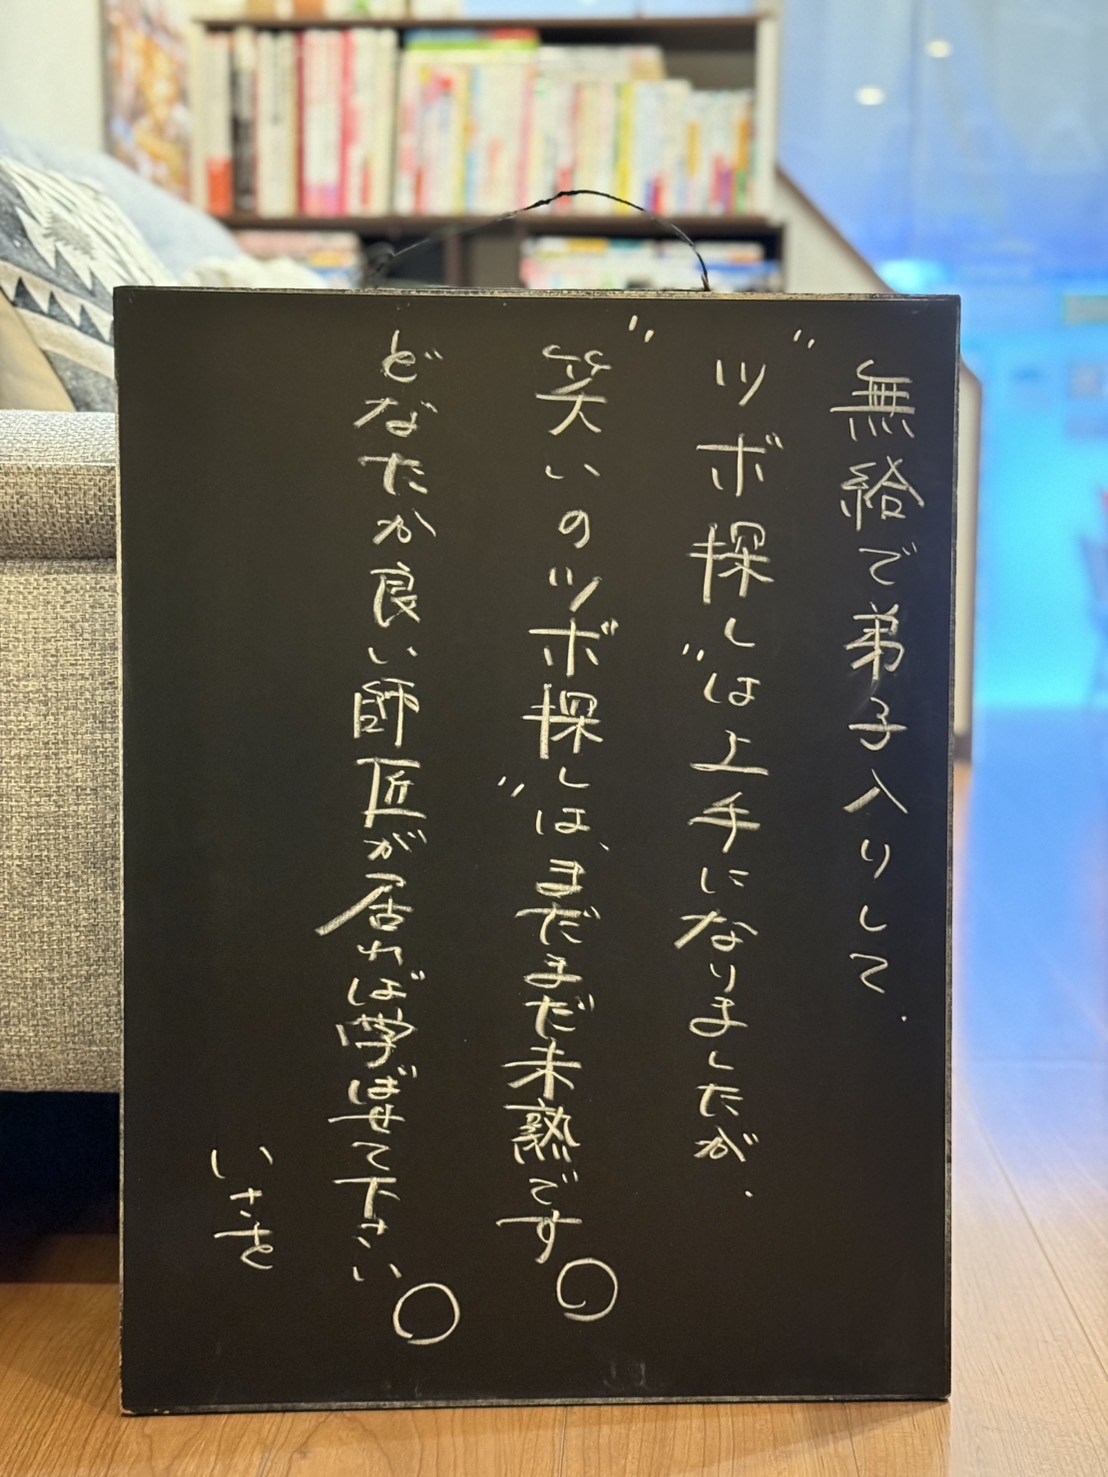 無給で弟子入りして、
"ツボ探し"は上手になりましたが、
"笑いのツボ探し"は、まだまだ未熟です。
どなたか良い師匠が居れば学ばせて下さい。
いさを